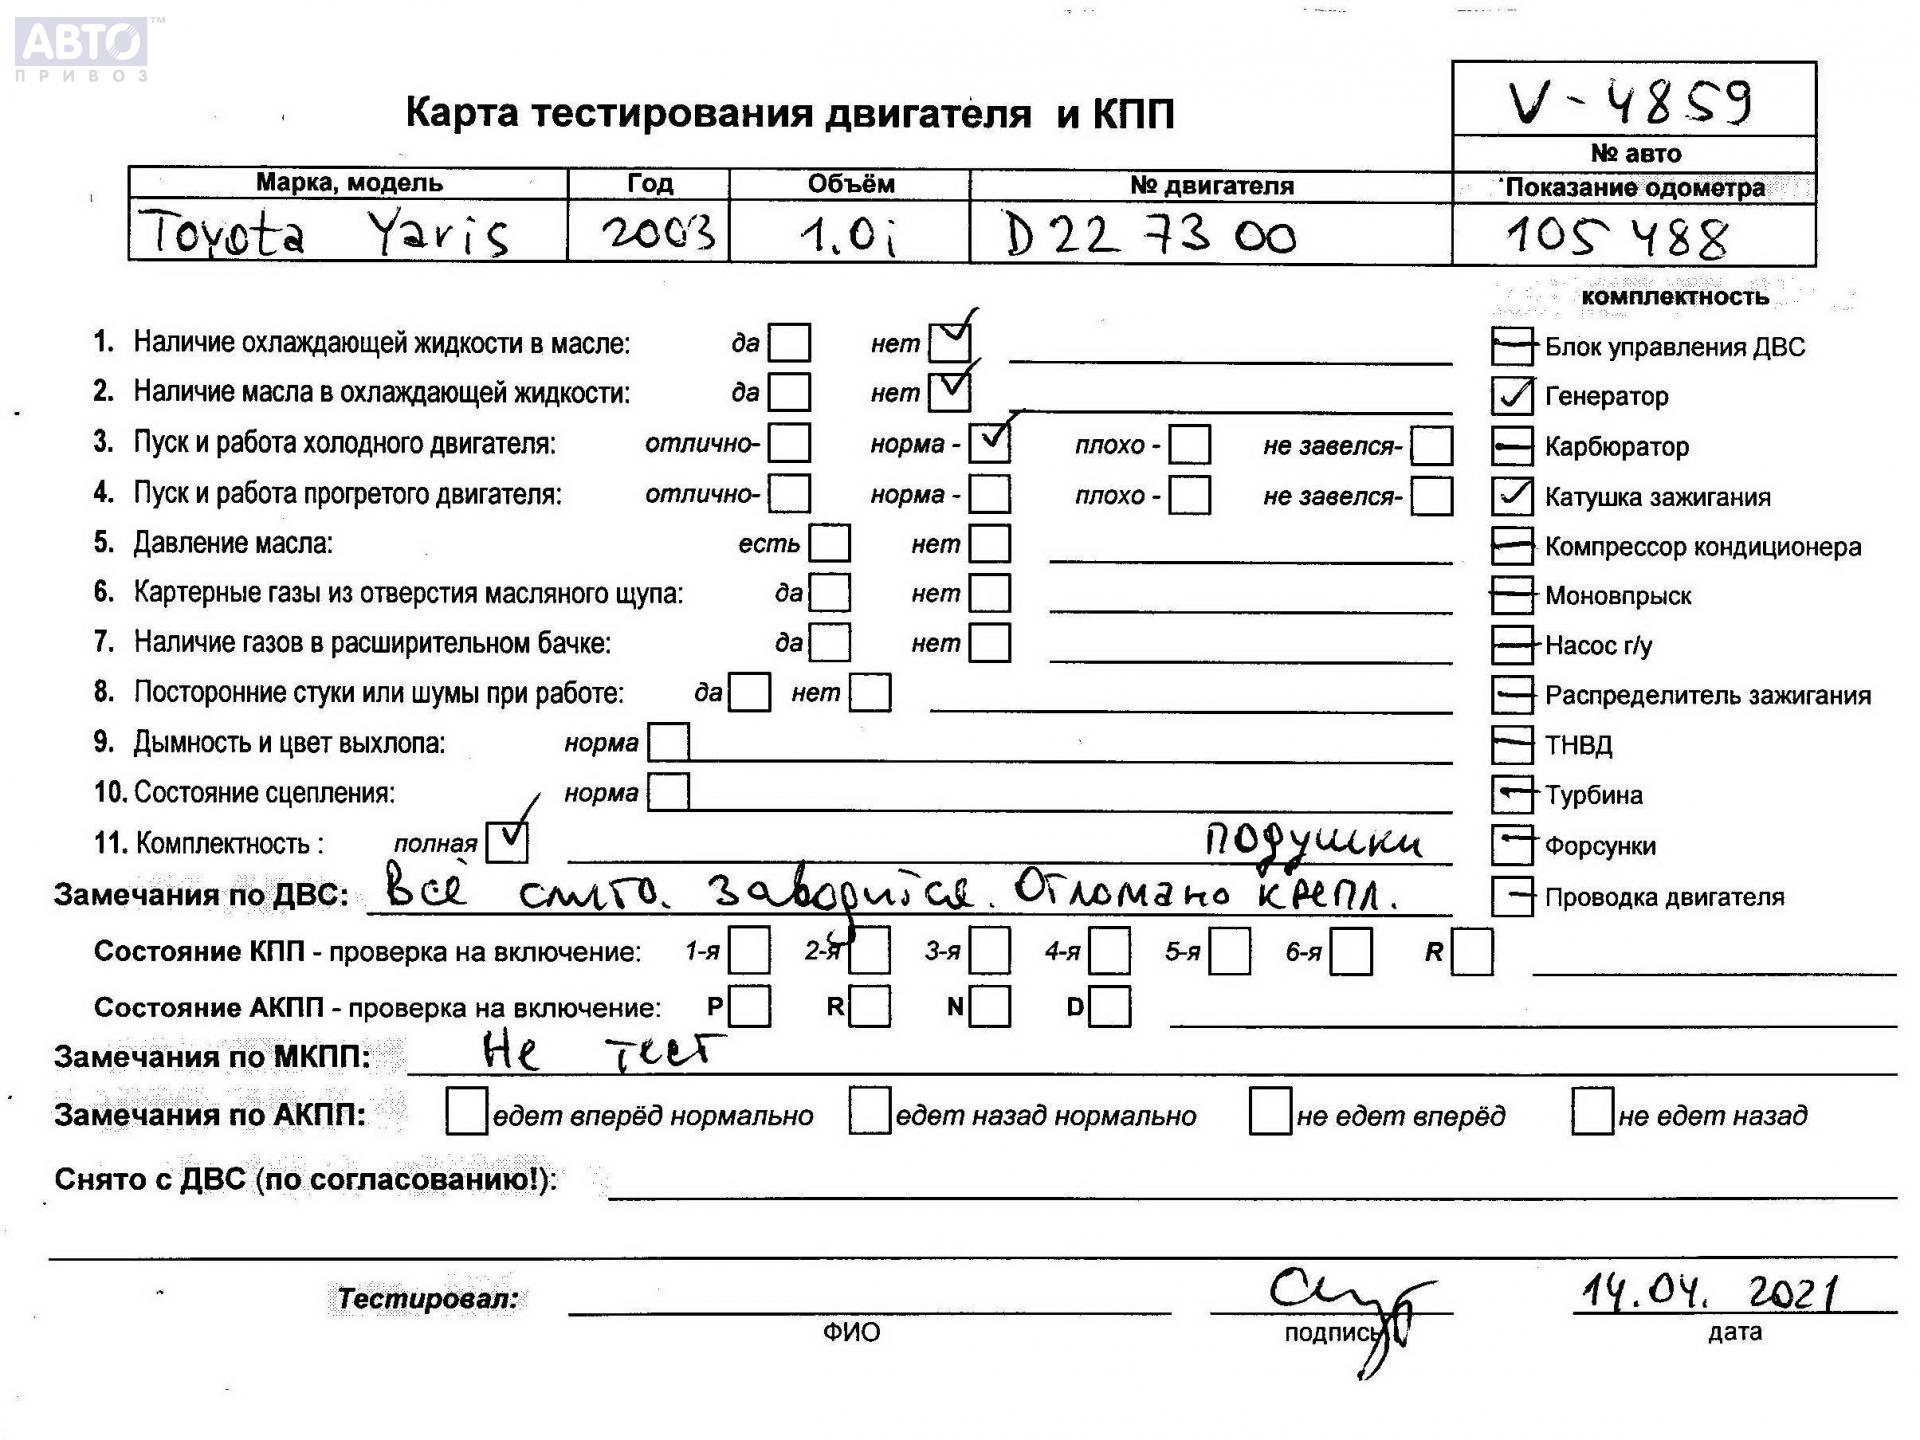 АВТО™
ПРИВОЗ
V-4859
Карта тестирования двигателя и КПП
№ авто
Марка, модель Год Объём № двигателя Показание одометра
Toyota Yaris 2003 1.0i D22 73 00 105 488
комплектность
1. Наличие охлаждающей жидкости в масле: да нет Блок управления ДВС
2. Наличие масла в охлаждающей жидкости: да нет Генератор
3. Пуск и работа холодного двигателя: отлично- норма - плохо - не завелся- Карбюратор
4. Пуск и работа прогретого двигателя: отлично- норма - плохо - не завелся- Катушка зажигания
5. Давление масла: есть нет Компрессор кондиционера
6. Картерные газы из отверстия масляного щупа: да нет Моновпрыск
7. Наличие газов в расширительном бачке: да нет Насос г/у
8. Посторонние стуки или шумы при работе: да нет Распределитель зажигания
9. Дымность и цвет выхлопа: норма ТНВД
10. Состояние сцепления: норма Турбина
11. Комплектность : полная подушки Форсунки
Замечания по ДВС: Всё слито. Заводится. Отломано крепл. Проводка двигателя
Состояние КПП - проверка на включение: 1-я 2-я 3-я 4-я 5-я 6-я R
Состояние АКПП - проверка на включение: P R N D
Замечания по МКПП: Не тест
Замечания по АКПП: едет вперёд нормально едет назад нормально не едет вперёд не едет назад
Снято с ДВС (по согласованию!):
Тестировал: 14.04. 2021
ФИО подпись дата